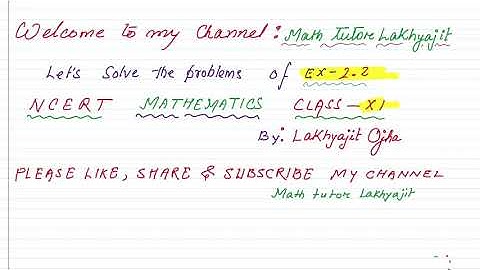 Welcome to my Channel: Math Tutor Lakhyajit
Let's Solve the problems of EX-2.2
NCERT MATHEMATICS CLASS-XI
By: Lakhyajit Ojha
PLEASE LIKE, SHARE & SUBSCRIBE MY CHANNEL
Math tutor Lakhyajit